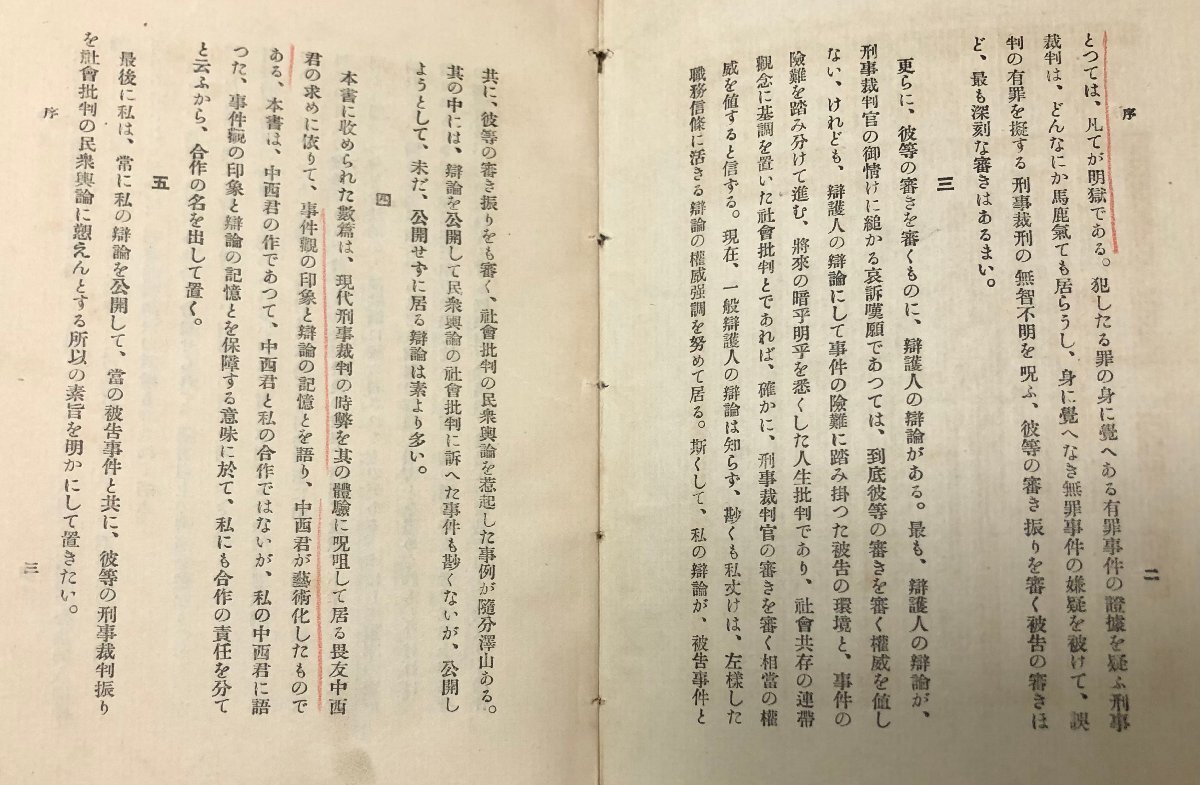 序
二
とつては、凡てが明獄である。犯したる罪の身に覺へある有罪事件の證據を疑ふ刑事
裁判は、どんなにか馬鹿氣ても居らうし、身に覺へなき無罪事件の嫌疑を被けて、誤
判の有罪を擬する刑事裁刑の無智不明を呪ふ、彼等の審き振りを審く被告の審きほ
ど、最も深刻な審きはあるまい。
三
更らに、彼等の審きを審くものに、辯護人の辯論がある。最も、辯護人の辯論が、
刑事裁判官の御情けに縋かる哀訴嘆願であつては、到底彼等の審きを審く權威を値し
ない、けれども、辯護人の辯論にして事件の險難に踏み掛つた被告の環境と、事件の
險難を踏み分けて進む、將來の暗乎明乎を悉くした人生批判であり、社會共存の連帶
觀念に基調を置いた社會批判とであれば、確かに、刑事裁判官の審きを審く相當の權
威を値すると信ずる。現在、一般辯護人の辯論は知らず、尠くも私丈けは、左樣した
職務信條に活きる辯論の權威强調を努めて居る。斯くして、私の辯論が、被告事件と
共に、彼等の審き振りをも審く、社會批判の民衆輿論を惹起した事例が隨分澤山ある。
其の中には、辯論を公開して民衆輿論の社會批判に訴へた事件も尠くないが、公開し
ようとして、未だ、公開せずに居る辯論は素より多い。
四
本書に收められた數篇は、現代刑事裁判の時弊を其の體驗に呪咀して居る畏友中西
君の求めに依りて、事件觀の印象と辯論の記憶とを語り、中西君が藝術化したもので
ある、本書は、中西君の作であつて、中西君と私の合作ではないが、私の中西君に語
つた、事件觀の印象と辯論の記憶とを保障する意味に於て、私にも合作の責任を分て
と云ふから、合作の名を出して置く。
五
最後に私は、常に私の辯論を公開して、當の被告事件と共に、彼等の刑事裁判振り
を社會批判の民衆輿論に愬えんとする所以の素旨を明かにして置きたい。
序
三